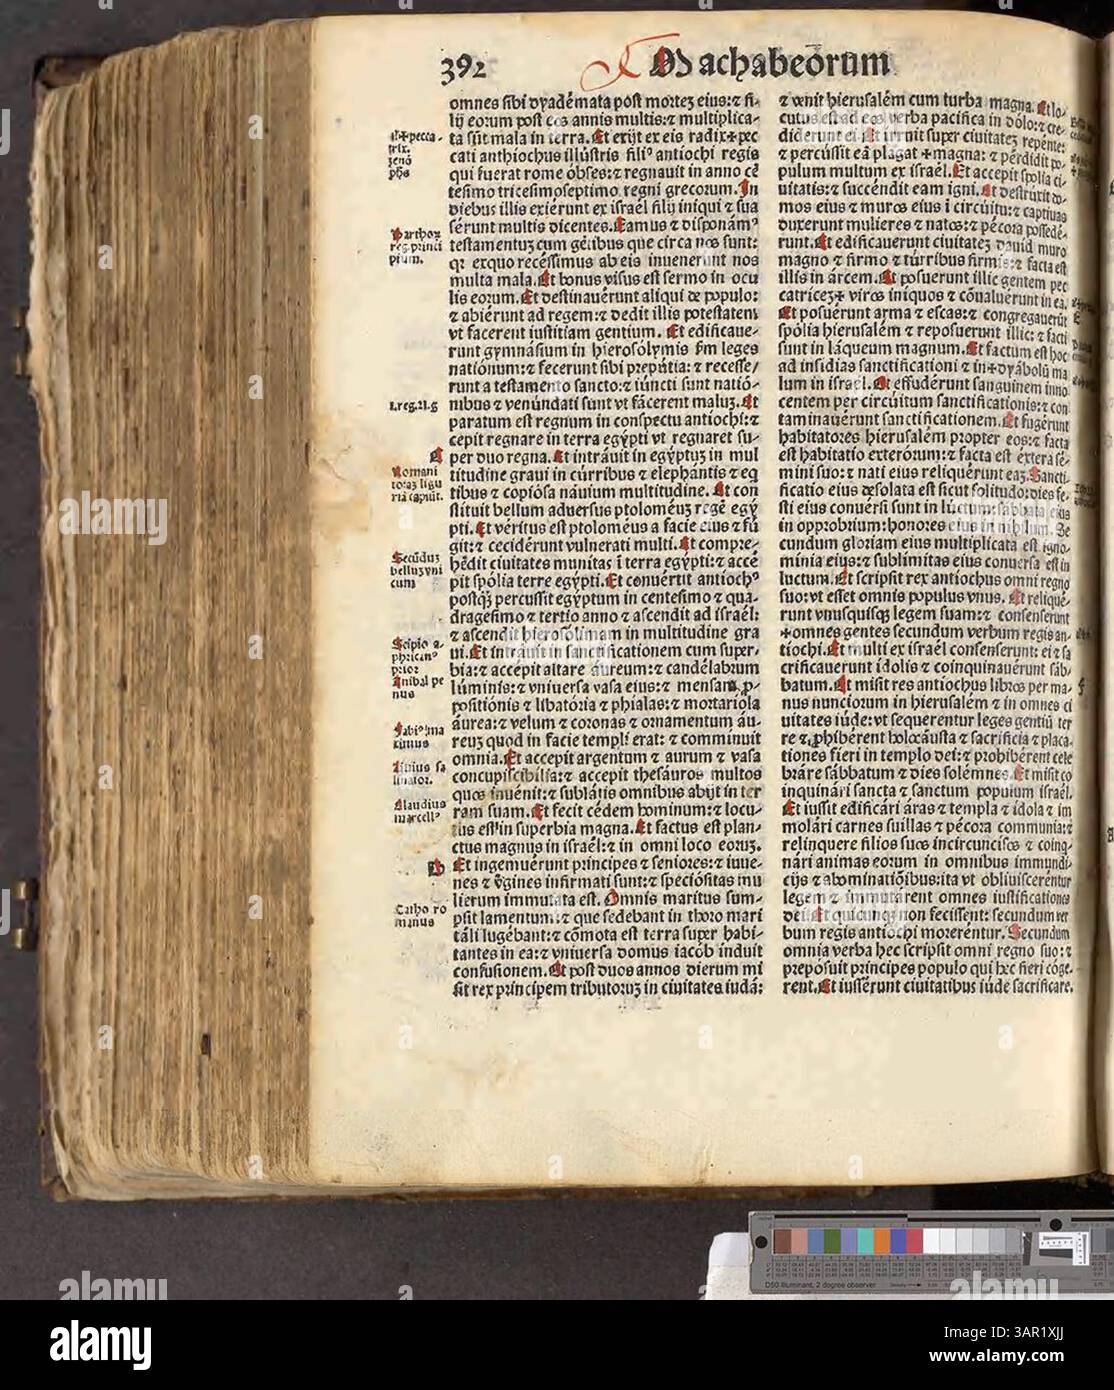 392
Machabeorum
omnes sibi dyadémata post mortez eius: ⁊ fi-
lij eorum post eos annis multis: ⁊ multiplica-
ta sūt mala in terra. Et exijt ex eis radix ✢ pec
cati anthiochus illústris fili⁹ antiochi regis
qui fuerat rome óbses: ⁊ regnauit in anno cē
tesimo tricesimoseptimo regni grecorum. In
diebus illis exiérunt ex israél filij iniqui ⁊ sua
sérunt multis dicentes. Eamus ⁊ disponám⁹
testamentuz cum gētibus que circa nos sunt:
qz exquo recéssimus ab eis inuenerunt nos
multa mala. Et bonus visus est sermo in ocu
lis eorum. Et destinauérunt aliqui de populo:
⁊ abiérunt ad regem: ⁊ dedit illis potestatem
vt facerent iustitiam gentium. Et edificaue-
runt gymnásium in hierosólymis fm leges
natiónum: ⁊ fecerunt sibi prepútia: ⁊ recesse/
runt a testamento sancto: ⁊ iúncti sunt natió-
nibus ⁊ venúndati sunt vt fácerent maluz. Et
paratum est regnum in conspectu antiochi: ⁊
cepit regnare in terra egýpti vt regnaret su-
per duo regna. Et intráuit in egýptuz in mul
titudine graui in cúrribus ⁊ elephántis ⁊ eq
tibus ⁊ copiósa náuium multitudine. Et con
stituit bellum aduersus ptoloméuz regē egý
pti. Et véritus est ptoloméus a facie eius ⁊ fū
git: ⁊ cecidérunt vulnerati multi. Et compre-
hēdit ciuitates munitas ī terra egýpti: ⁊ accé
pit spólia terre egýpti. Et conuértit antioch⁹
postq̄ʒ percussit egýptum in centesimo ⁊ qua-
dragesimo ⁊ tertio anno ⁊ ascendit ad israél:
⁊ ascendit hierosólimam in multitudine gra
ui. Et intráuit in sanctificationem cum super-
bia: ⁊ accépit altare áureum: ⁊ candélabrum
lúminis: ⁊ vniuersa vasa eius: ⁊ mensam ꝓ-
positiónis ⁊ libatória ⁊ phialas: ⁊ mortariola
áurea: ⁊ velum ⁊ coronas ⁊ ornamentum áu-
reuz quod in facie templi erat: ⁊ comminuit
omnia. Et accepit argentum ⁊ aurum ⁊ vasa
concupiscibilia: ⁊ accepit thesáuros multos
quos inuénit: ⁊ sublátis omnibus abijt in ter
ram suam. Et fecit cédem hominum: ⁊ locu-
tus est in superbia magna. Et factus est plan-
ctus magnus in israél: ⁊ in omni loco eoruz.
Et ingemuérunt príncipes ⁊ seniores: ⁊ iuue-
nes ⁊ v̄gines infirmati sunt: ⁊ speciósitas mu
lierum immutata est. Omnis maritus sum-
psit lamentum: ⁊ que sedebant in thoro mari
táli lugébant: ⁊ cōmota est terra super habi-
tantes in ea: ⁊ vniuersa domus iacób induit
confusionem. Et post duos annos dierum mi
sit rex principem tributoruz in ciuitates iudá:
⁊ venit hierusalém cum turba magna. Et lo-
cutus est ad eos verba pacifica in dolo: ⁊ cre-
diderunt ei. Et irruit super ciuitatez repente:
⁊ percússit eā plagat ✢ magna: ⁊ pérdidit po-
pulum multum ex israél. Et accepit spólia ci-
uitatis: ⁊ succéndit eam igni. Et destrúxit do-
mos eius ⁊ muros eius ī circúitu: ⁊ captiuas
duxerunt mulieres ⁊ natos: ⁊ pécora possedé-
runt. Et edificauerunt ciuitatez dauid muro
magno ⁊ firmo ⁊ túrribus firmis: ⁊ facta est
illis in árcem. Et posuerunt illic gentem pec
catricez ✢ viros iniquos ⁊ cōualuérunt in ea.
Et posuérunt arma ⁊ escas: ⁊ congregauerūt
spólia hierusalém ⁊ reposuerunt illic: ⁊ facti
sunt in láqueum magnum. Et factum est hoc
ad insidias sanctificationi ⁊ in ✢ dyábolū ma
lum in israel. Et effudérunt sanguinem inno
centem per circúitum sanctificationis: ⁊ con
taminauérunt sanctificationem. Et fugérunt
habitatores hierusalém propter eos: ⁊ facta
est habitatio exterórum: ⁊ facta est éxtera sé-
mini suo: ⁊ nati eius reliquérunt eaz. Sancti-
ficatio eius desolata est sicut solitudo: dies fe-
sti eius conuersi sunt in luctum: sabbata eius
in opprobrium: honores eius in nihilum. Se
cundum gloriam eius multiplicata est igno-
minia eius: ⁊ sublimitas eius conuersa est in
luctum. Et scripsit rex antiochus omni regno
suo: vt esset omnis populus vnus. Et reliqué-
runt vnusquisqz legem suam: ⁊ consenserunt
✢ omnes gentes secundum verbum regis an-
tiochi. Et multi ex israél consenserunt: ei ⁊ sa
crificauerunt ídolis ⁊ coinquinauérunt sáb-
batum. Et misit res antiochus libros per ma-
nus nunciorum in hierusalém ⁊ in omnes ci
uitates iúde: vt sequerentur leges gentiū ter
re ⁊ ꝓhibérent holocáusta ⁊ sacrificia ⁊ placa-
tiones fieri in templo dei: ⁊ prohibérent cele
bráre sábbatum ⁊ dies solémnes. Et misit co
inquinári sancta ⁊ sanctum populum israél.
Et iussit edificári áras ⁊ templa ⁊ ídola ⁊ im
molári carnes suillas ⁊ pécora communia: ⁊
relinquere filios suos incircuncisos ⁊ coinq-
nári animas eorum in omnibus immundi-
cijs ⁊ abominatiōibus: ita vt obliuisceréntur
legem ⁊ immutárent omnes iustificationes
dei. Et quicunqz non fecissent: secundum ver
bum regis antiochi moreréntur. Secundum
omnia verba hec scripsit omni regno suo: ⁊
preposuit principes populo qui hec fieri cóge-
rent. Et iussérunt ciuitatibus iúde sacrificare.
al ✢ pecca-
trix.
zenō
phs
Parthoz
reg. princi
pium.
1.reg.21.g
A
Romani
totaz ligu
riā capiūt.
Secūduz
belluz pni
cum
Scipio a-
phrican⁹
prior
Anibal pe
nus
Fabi⁹ ma
ximus
Liuius sa
linator.
Claudius
marcell⁹
B
Catho ro
manus
D50 Illuminant, 2 degree observer
alamy
Image ID: 3AR1XJJ
www.alamy.com